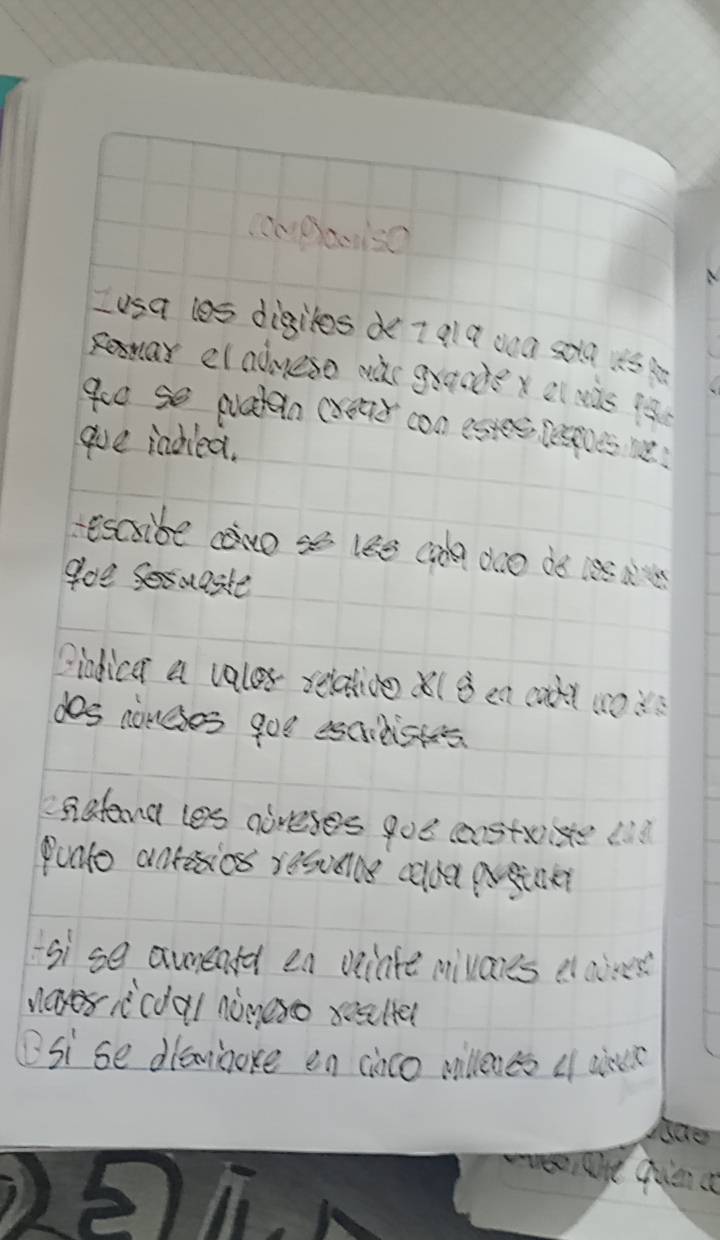 compromiso
1 usa los digitos de 1 al 9 una sola ves
formar el número más grande y el más
que se puedan crear con estos. Despues
que indica.
escribe cómo se lee cada uno de los
que formaste
indica el valor relativo del 8 en cada uno
dos números que escribistes
Retoma los números que construiste
punto anterior resuelve cada pregunta
si se aumenta en veinte millones el número
mayor cual número resulta
si se disminuye en cinco millones el número
quien